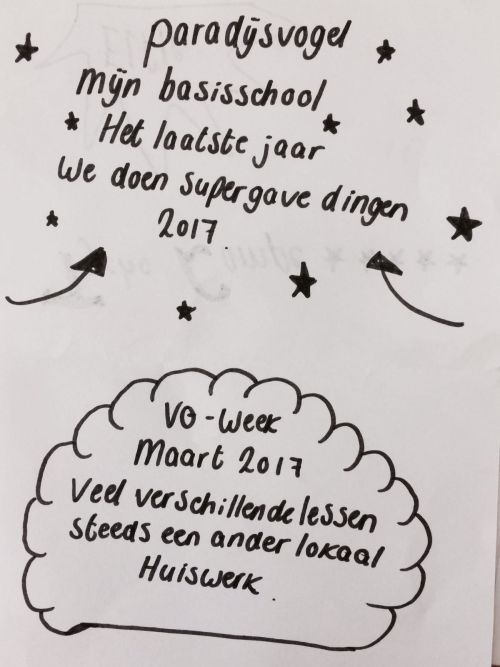 paradijsvogel
mijn basisschool
Het laatste jaar
We doen supergave dingen
2017
VO-Week
Maart 2017
Veel verschillende lessen
steeds een ander lokaal
Huiswerk